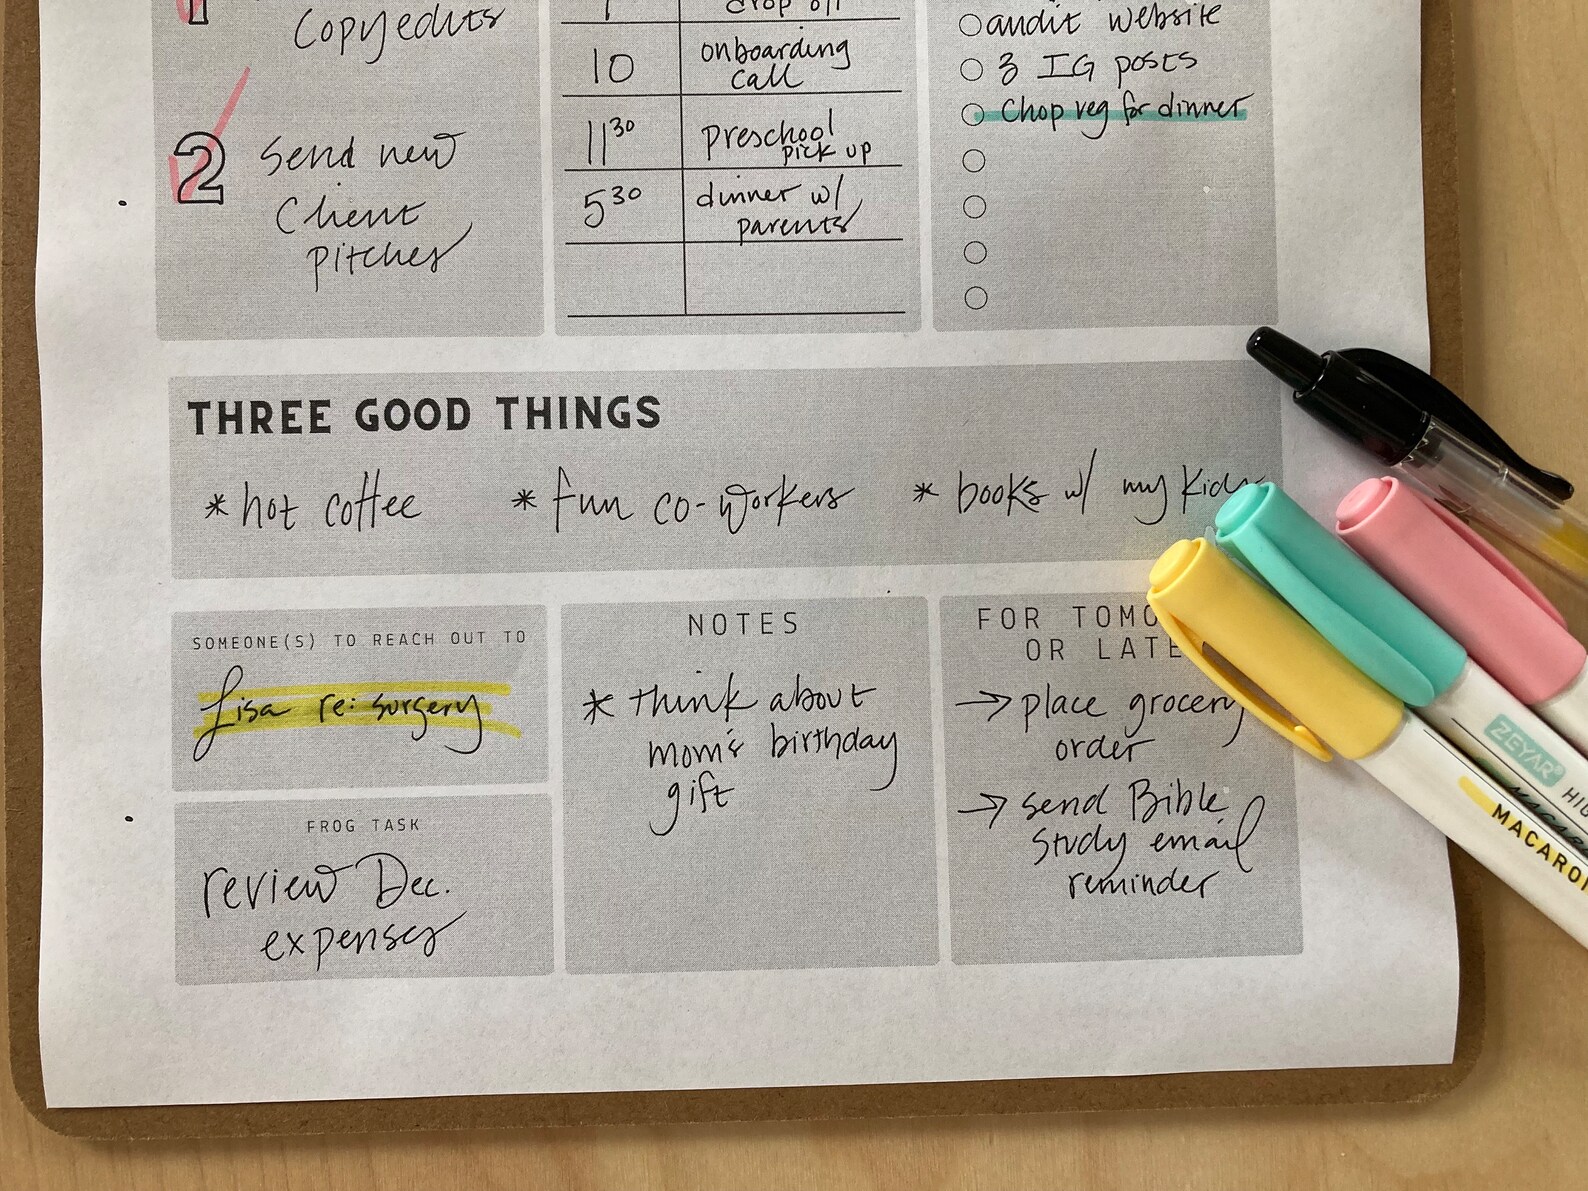 1
Copyedits
2
Send new
Client
pitches
drop off
10
onboarding
call
11 30
preschool
pick up
5 30
dinner w/
parents
audit website
3 IG posts
Chop veg for dinner
THREE GOOD THINGS
* hot coffee
* fun co-workers
* books w/ my kids
SOMEONE(S) TO REACH OUT TO
Lisa re: surgery
FROG TASK
review Dec.
expenses
NOTES
* think about
mom's birthday
gift
FOR TOMO
OR LATE
→ place grocery
order
→ send Bible
study email
reminder
ZEYAR®
HIG
MACARON